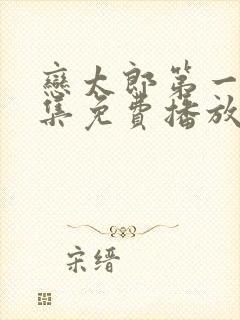 戀太郎第一
集免費播放
宋缙